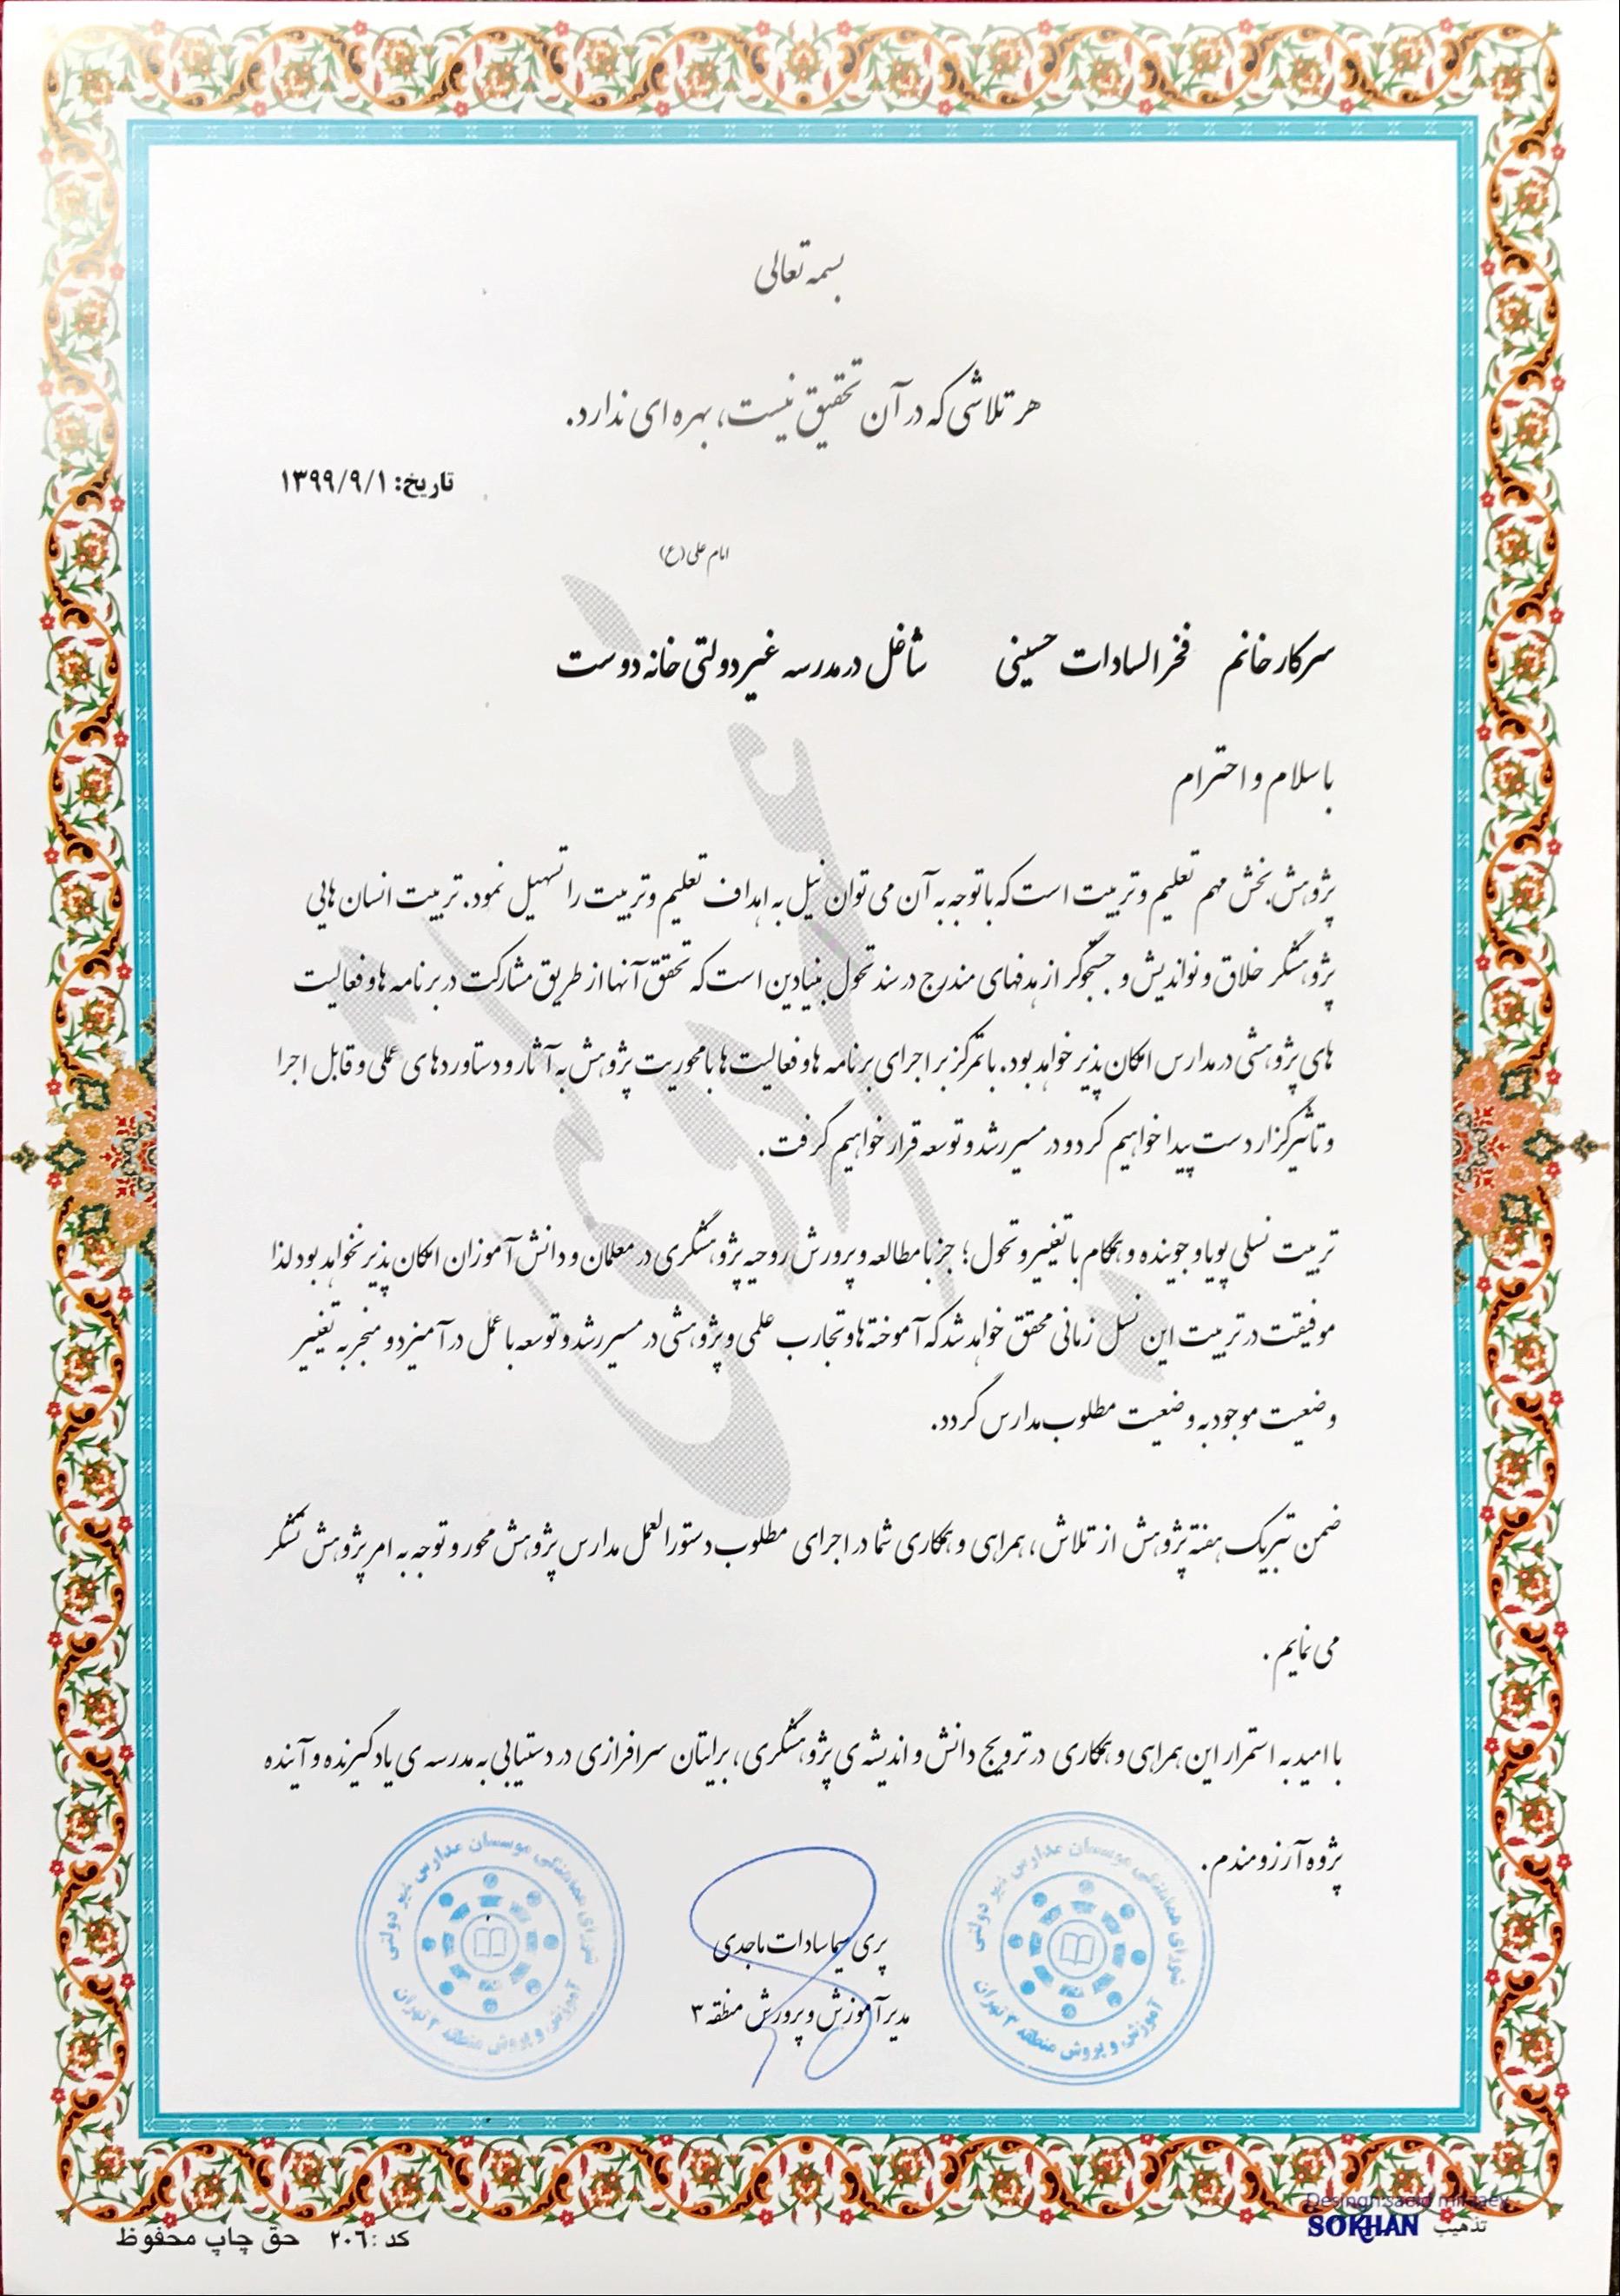 بسمه تعالی
هر تلاشی که در آن تحقیق نیست، بهره ای ندارد.
تاریخ: ۱۳۹۹/۹/۱
امام علی (ع)
سرکار خانم فخر السادات حسینی شاغل در مدرسه غیر دولتی خانه دوست
با سلام و احترام
پژوهش بخش مهم تعلیم و تربیت است که با توجه به آن می توان نیل به اهداف تعلیم و تربیت را تسهیل نمود. تربیت انسان هایی
پژوهشگر خلاق و نواندیش و جستجوگر از هدفهای مندرج در سند تحول بنیادین است که تحقق آنها از طریق مشارکت در برنامه ها و فعالیت
های پژوهشی در مدارس امکان پذیر خواهد بود. با تمرکز بر اجرای برنامه ها و فعالیت ها با محوریت پژوهش به آثار و دستاوردهای عملی و قابل اجرا
و تاثیرگزار دست پیدا خواهیم کرد و در مسیر رشد و توسعه قرار خواهیم گرفت.
تربیت نسلی پویا و جوینده و همگام با تغییر و تحول؛ جز با مطالعه و پرورش روحیه پژوهشگری در معلمان و دانش آموزان امکان پذیر نخواهد بود لذا
موفیقت در تربیت این نسل زمانی محقق خواهد شد که آموخته ها و تجارب علمی و پژوهشی در مسیر رشد و توسعه با عمل در آمیزد و منجر به تغییر
وضعیت موجود به وضعیت مطلوب مدارس گردد.
ضمن تبریک هفته پژوهش از تلاش، همراهی و همکاری شما در اجرای مطلوب دستورالعمل مدارس پژوهش محور و توجه به امر پژوهش تشکر
می نمایم.
با امید به استمرار این همراهی و همکاری در ترویج دانش و اندیشه ی پژوهشگری، برایتان سرافرازی در دستیابی به مدرسه ی یادگیرنده و آینده
پژوه آرزومندم.
پری سیما سادات ماجدی
مدیر آموزش و پرورش منطقه ۳
شورای هماهنگی موسسان مدارس غیر دولتی
آموزش و پرورش منطقه ۳ تهران
شورای هماهنگی موسسان مدارس غیر دولتی
آموزش و پرورش منطقه ۳ تهران
تذهیب SOKHAN
کد : ۲۰۶ حق چاپ محفوظ